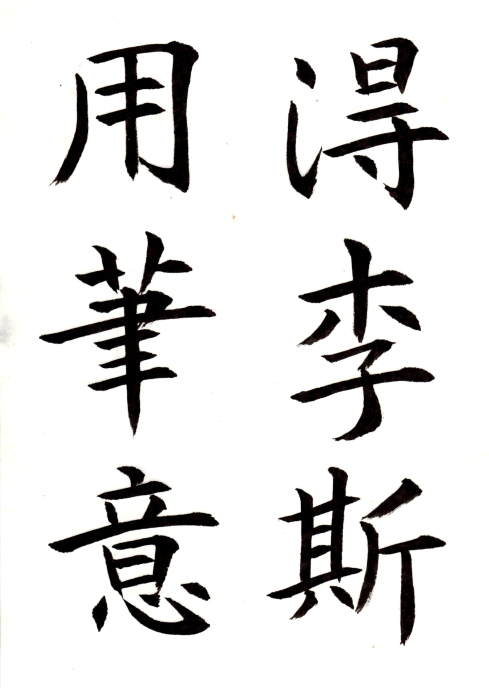 得李斯
用筆意